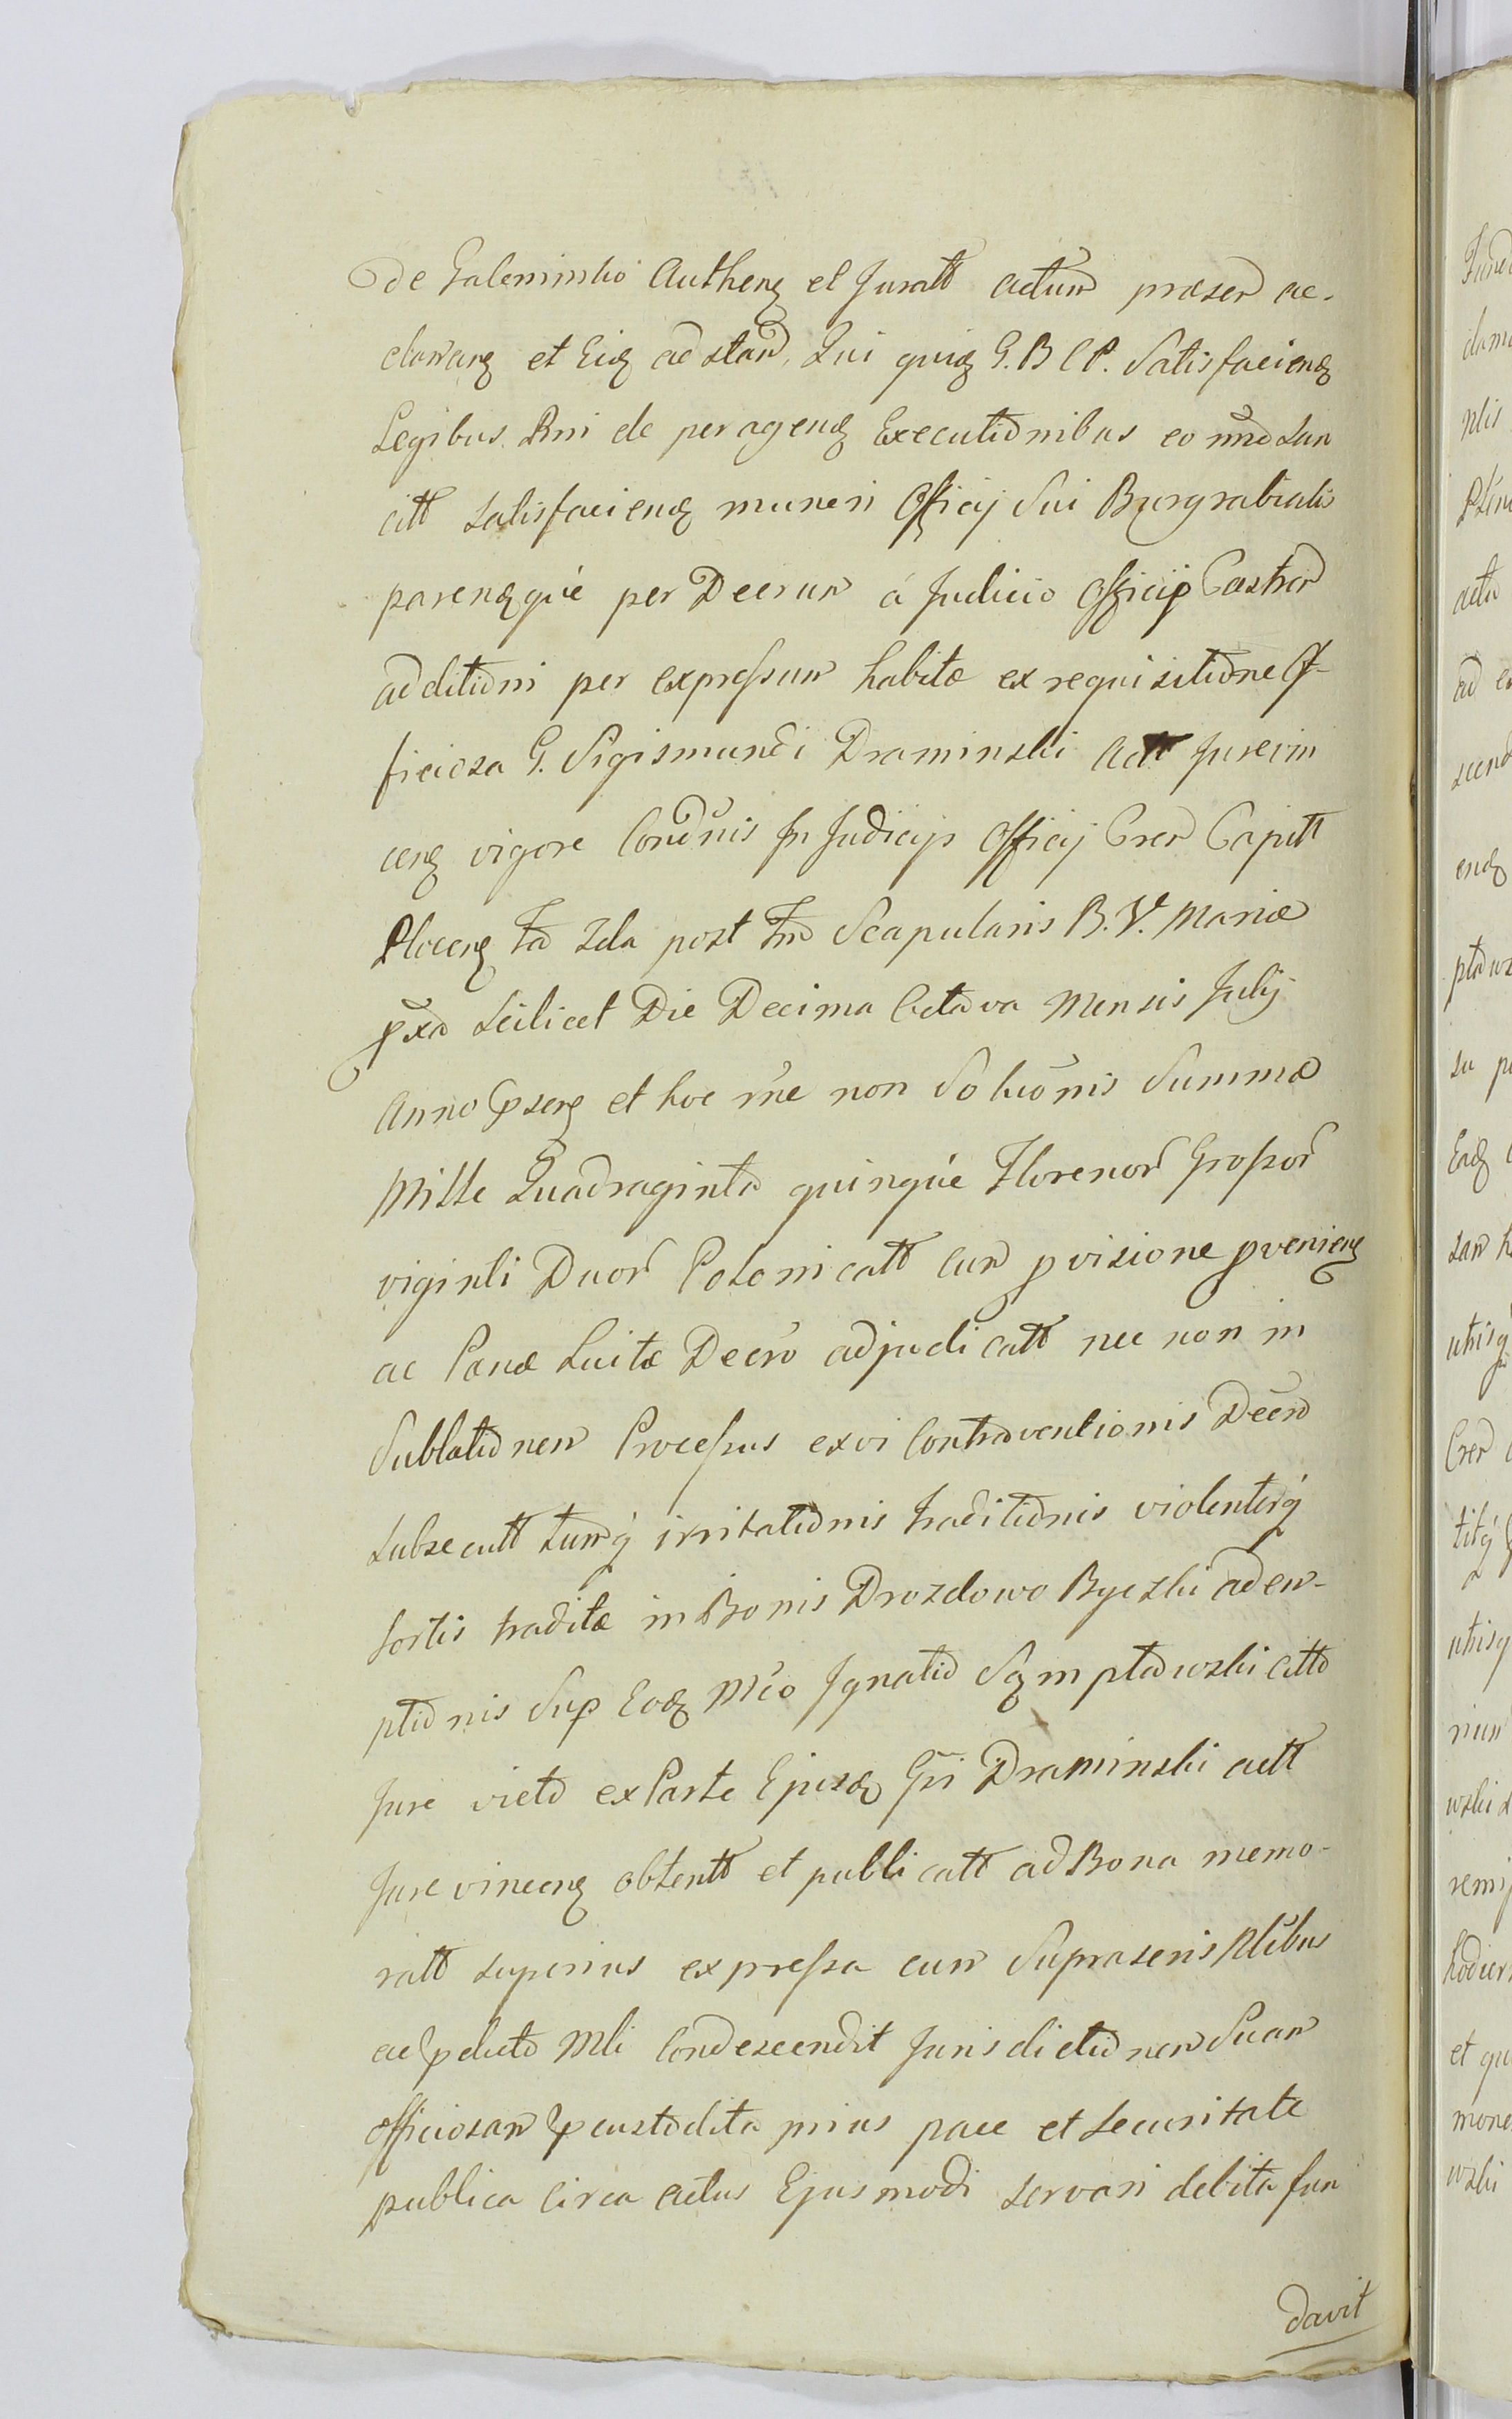 de Galeminsko Autheng et Juratt actum præsen ac-
clamang et Eiq ad stand, Qui quiq G. B C P. Satisfacienq
Legibus Rni de peragenq Executionibus eo nnd San
citt satisfacienq muneri Officij Sui Burgrabialis
parenqque per Decrum á Judicio Officij Castren
additioni per expressum habitæ ex requisitione Of-
ficiosa G. Sigismundi Draminski Act Jurevin
ceng vigore Condnis In Judicijs Officij Cren Capitt
Ploceng Fa 2da post Fm Scapularis B. V. Mariæ
pxa Scilicet Die Decima Octava Mensis Julij
Anno pseng et hoc rne non Solucõnis Summæ
Mille Quadraginta quinque Florenor Grossor
viginti Duor Polonicatt cum pvisione pvenieng
ac Pænæ Luitæ Decro adjudicatt nec non in
Sublationem Processus exvi Contraventionis Decro
subsecutt tumq irritationis traditionis violentirq
sortis traditæ in Bonis Drozdowo Bycski adem-
ptionis Sup Eoq Mco Ignatio Symptawski citto
Jure victo ex Parte Ejusq Gsi Draminski actt
Jure vinceng obtentt et publicatt ad Bona memo-
ratt superius expressa cum Suprascris Nlibus
ac pdicto Mli Condescendit Jurisdictionem Suam
officiosam p custodita prius pace et securitate
publica circa actus Ejusmodi servari debita fun
davit
Fund
clama
nlis
Plin
actu
ad e
scend
enq
ptaws
su p
Eaq
san h
utrisq
Cren
titq
utrisq
rium
wski
remi
hodier
et qu
mone
wski